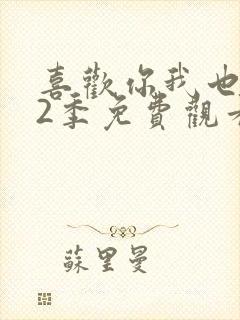 喜歡你我也
2季免費觀
蘇里曼